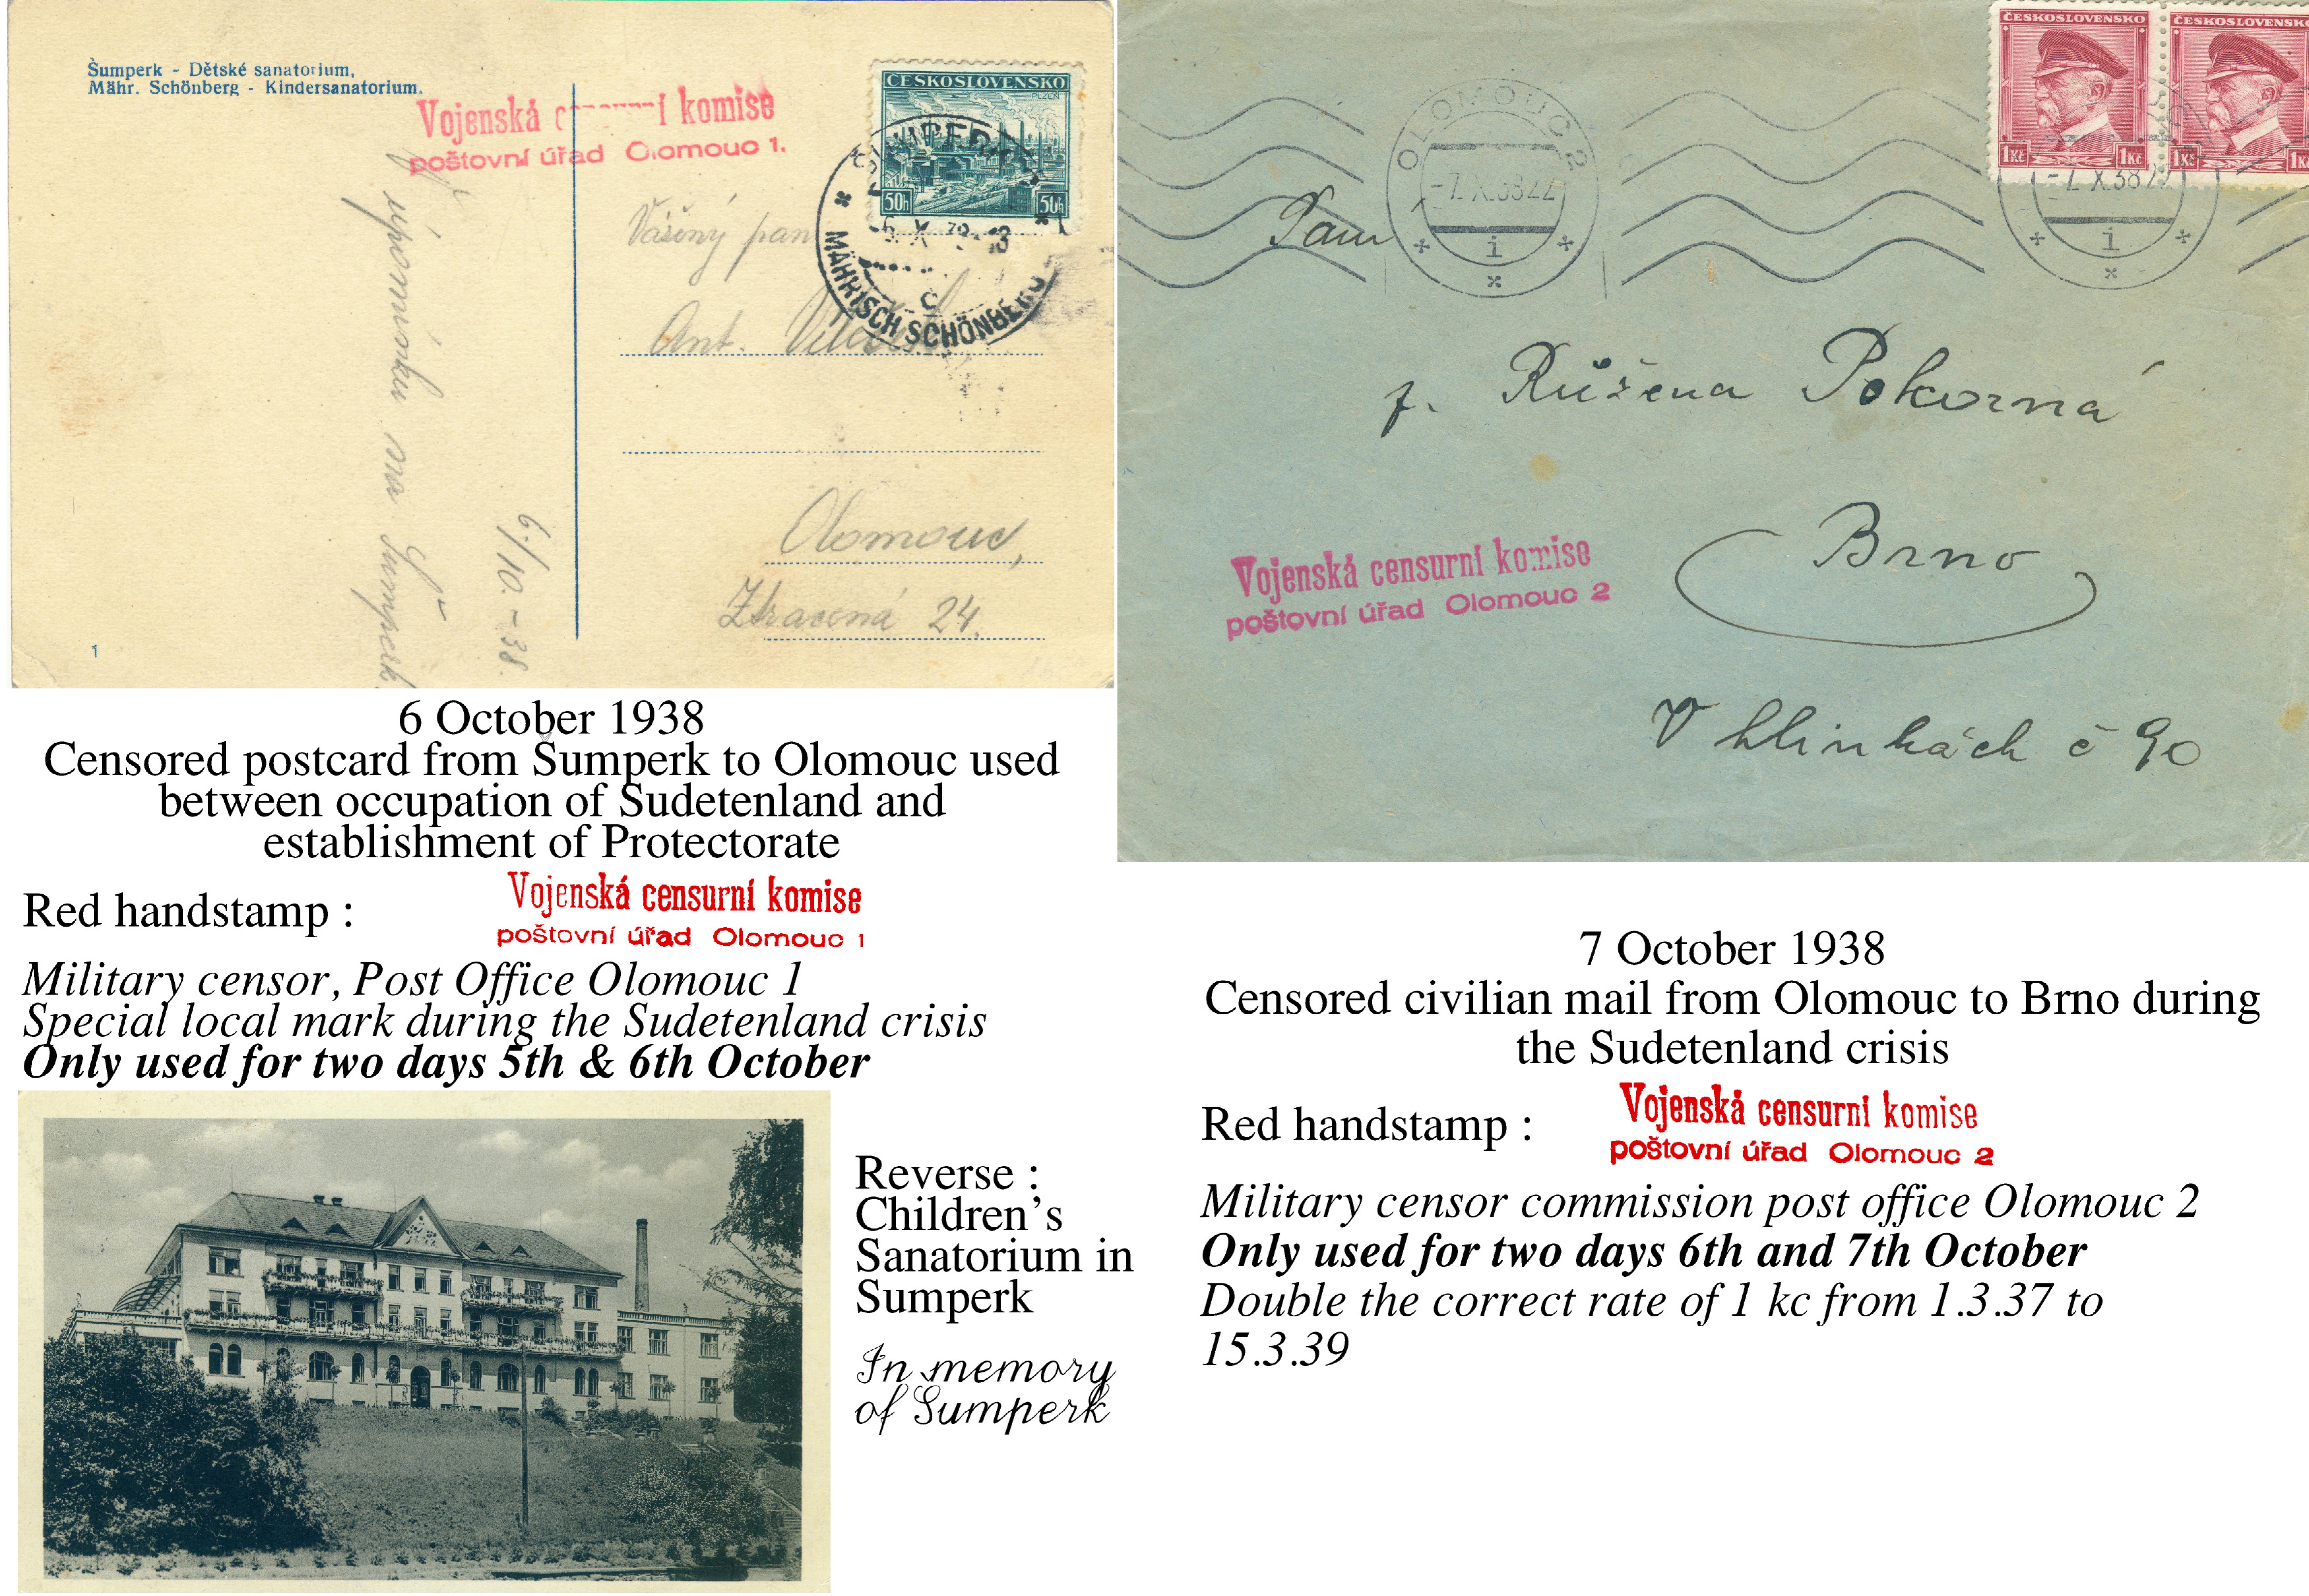 Šumperk - Dětské sanatorium,
Mähr. Schönberg - Kindersanatorium.
Vojenská komise
poštovní úřad Olomouc 1.
ČESKOSLOVENSKO
PLZEŇ
50h 50h
MÄHRISCH SCHÖNBERG
c
Vážený pan
Ant.
Olomouc,
Ztracená 24.
na Šumperk
6./10.-38.
1
ČESKOSLOVENSKO ČESKOSLOVENSKO
1Kč 1Kč 1Kč 1Kč
OLOMOUC 2
-7.X.38 22
i
-7.X.38
i
Paní
p. Růžena Pokorná
Brno
V hlinkách č 90
Vojenská censurní komise
poštovní úřad Olomouc 2
6 October 1938
Censored postcard from Sumperk to Olomouc used
between occupation of Sudetenland and
establishment of Protectorate
Red handstamp :
Vojenská censurní komise
poštovní úřad Olomouc 1
Military censor, Post Office Olomouc 1
Special local mark during the Sudetenland crisis
Only used for two days 5th & 6th October
Reverse :
Children's
Sanatorium in
Sumperk
In memory
of Sumperk
7 October 1938
Censored civilian mail from Olomouc to Brno during
the Sudetenland crisis
Red handstamp :
Vojenská censurní komise
poštovní úřad Olomouc 2
Military censor commission post office Olomouc 2
Only used for two days 6th and 7th October
Double the correct rate of 1 kc from 1.3.37 to
15.3.39